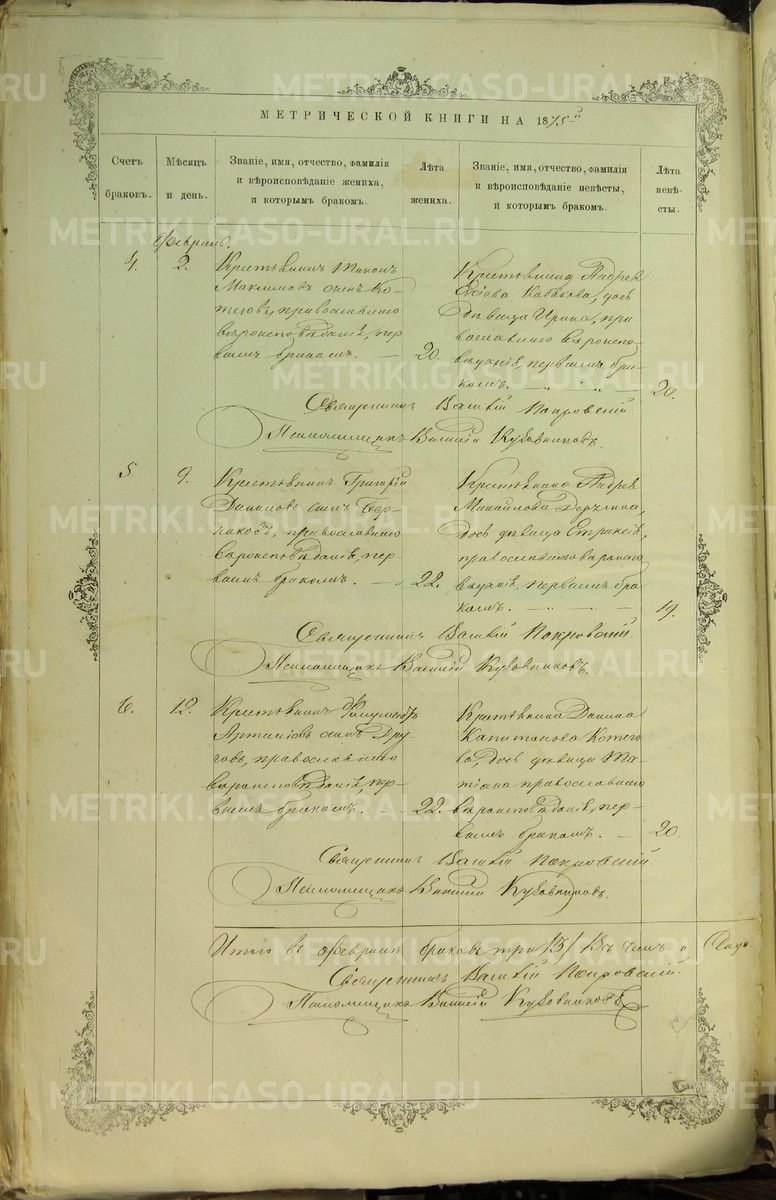 МЕТРИЧЕСКОЙ КНИГИ НА 1875й
Счетъ браковъ.
Мѣсяцъ и день.
Званіе, имя, отчество, фамилія
и вѣроисповѣданіе жениха,
и которымъ бракомъ.
Лѣта жениха.
Званіе, имя, отчество, фамилія
и вѣроисповѣданіе невѣсты,
и которымъ бракомъ.
Лѣта невѣ-
сты.
Февраль.
4. 2.
Крестьянинъ
Максимовъ сынъ Ко-
теговъ, православнаго
вѣроисповѣданія, пер-
вымъ бракомъ. — 20.
Крестьянина Андрея
дочь
дѣвица Ирина, пра
вославнаго вѣроиспо-
вѣданія, первымъ бра-
комъ. — 20.
Священникъ Василій Покровскій
Псаломщикъ Василій Кузовниковъ.
5 9.
Крестьянинъ Григорій
Даниловъ сынъ
православнаго
вѣроисповѣданія, пер-
вымъ бракомъ. — 22.
Крестьянина Андрея
Михайлова
дочь дѣвица
православнаго вѣроиспо
вѣданія, первымъ бра
комъ. — 19.
Священникъ Василій Покровскій.
Псаломщикъ Василій Кузовниковъ.
6. 12.
Крестьянинъ
сынъ Дру-
говъ, православнаго
вѣроисповѣданія, пер-
вымъ бракомъ. — 22.
Крестьянина Данила
Капитонова Котего
ва дочь дѣвица Та-
тіана православнаго
вѣроисповѣданія, пер-
вымъ бракомъ. — 20.
Священникъ Василій Покровскій.
Псаломщикъ Василій Кузовниковъ.
Итого въ Февралѣ браковъ три /3/ Въ чемъ и
Священникъ Василій Покровскій.
Псаломщикъ Василій Кузовниковъ
METRIKI.GASO-URAL.RU